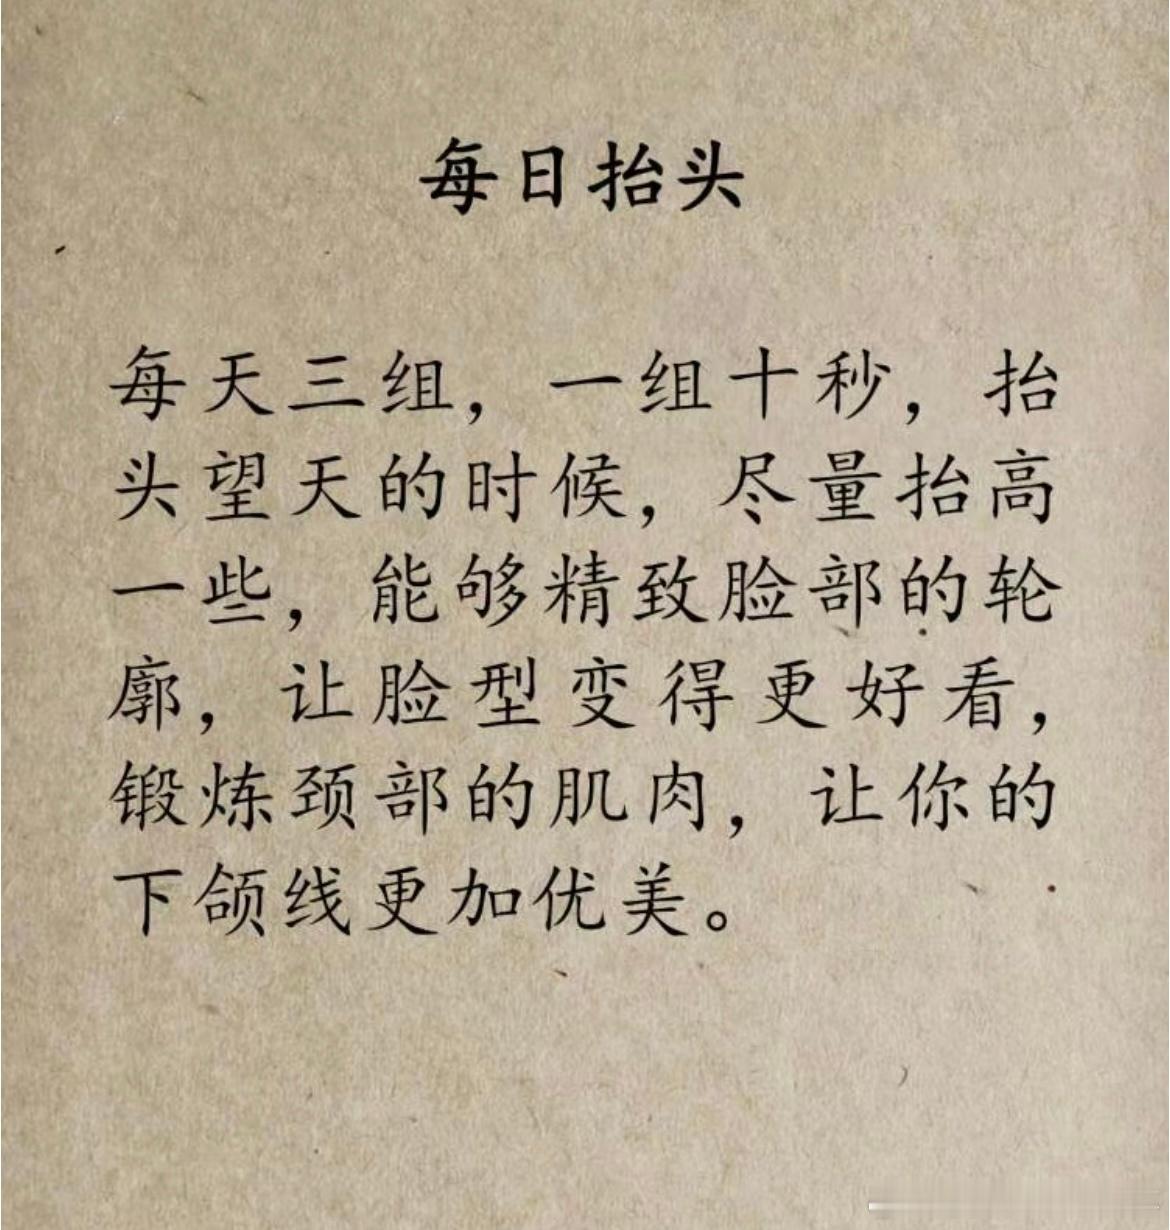 每日抬头
每天三组，一组十秒，抬
头望天的时候，尽量抬高
一些，能够精致脸部的轮
廓，让脸型变得更好看，
锻炼颈部的肌肉，让你的
下颌线更加优美。